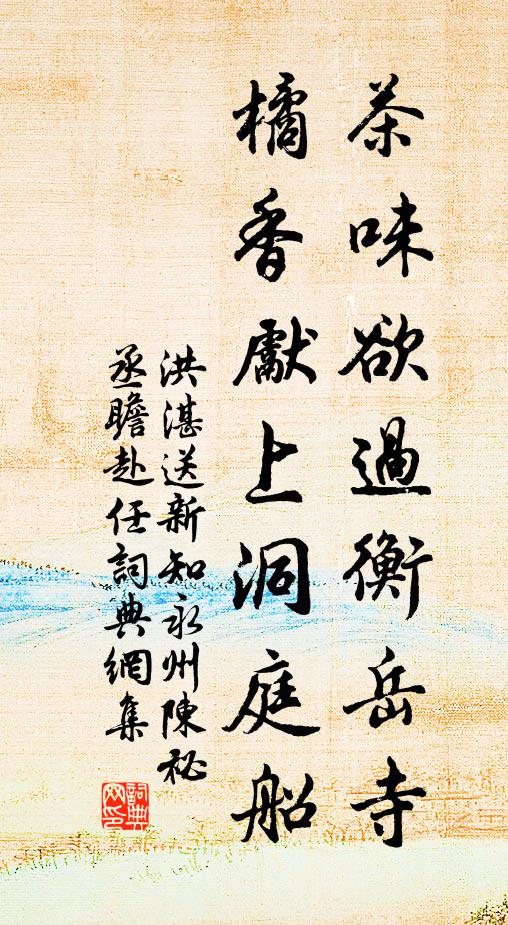 茶味欲過衡岳寺
橘香獻上洞庭船
洪湛送新知永州陳祕
丞瞻赴任詞典網集
詞典
网印